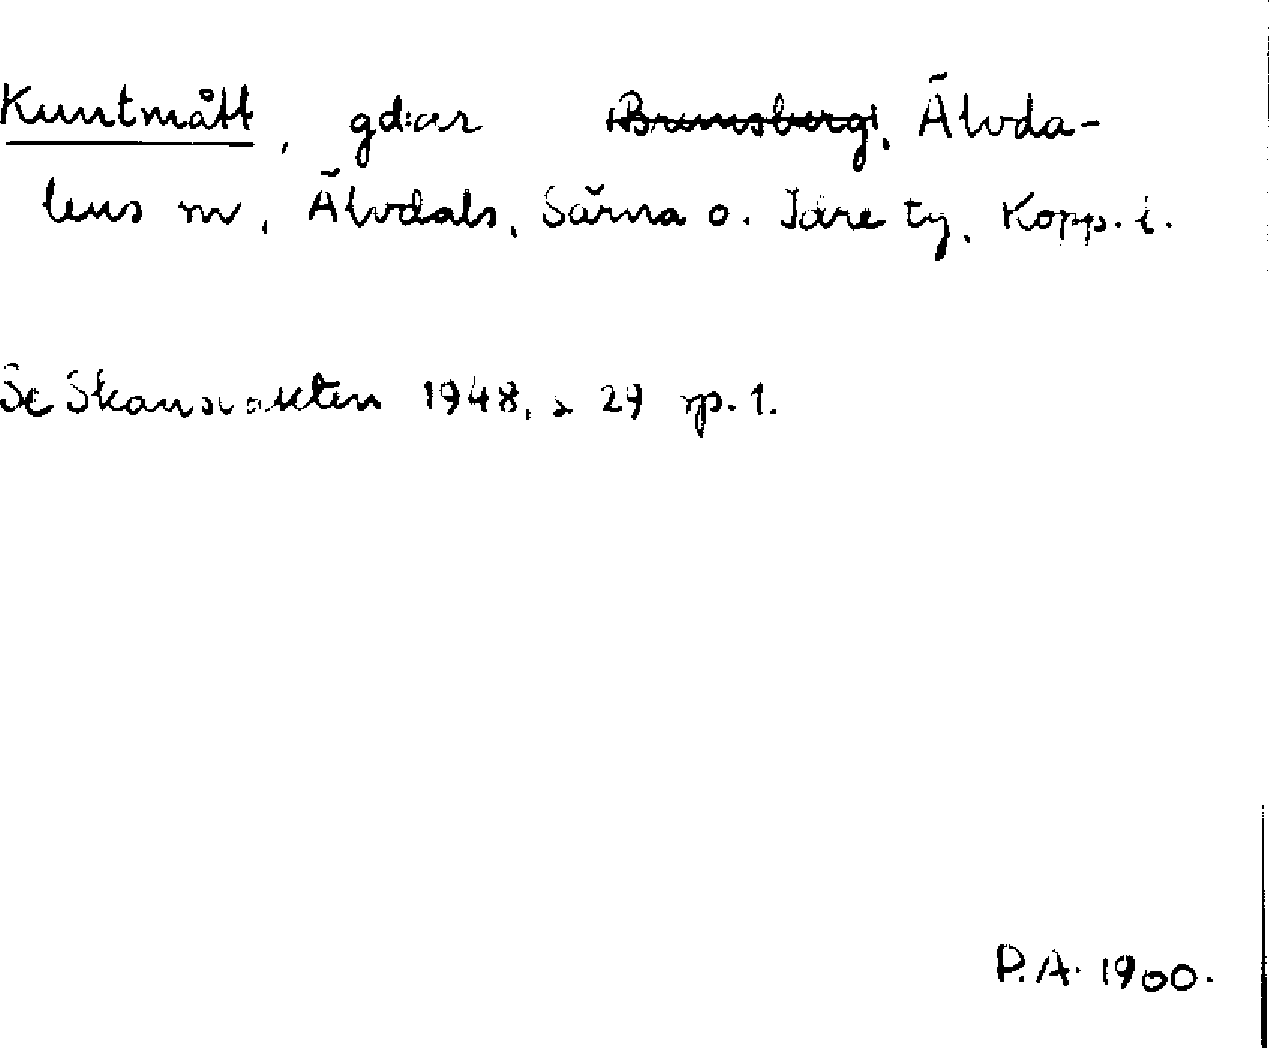 Kuntmått, gd:ar Brunsberg, Älvda-
lens m, Älvdals, Särna o. Idre tg, Kopp. l.
Se Skansvakten 1948, s 29 sp. 1.
P.A. 1900.